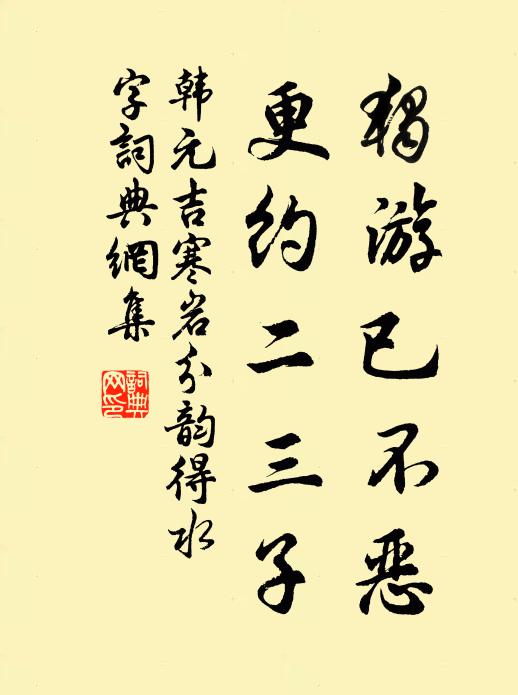 独游已不恶
更约二三子
韩元吉寒岩分韵得水
字詞典網集
詞典
网印